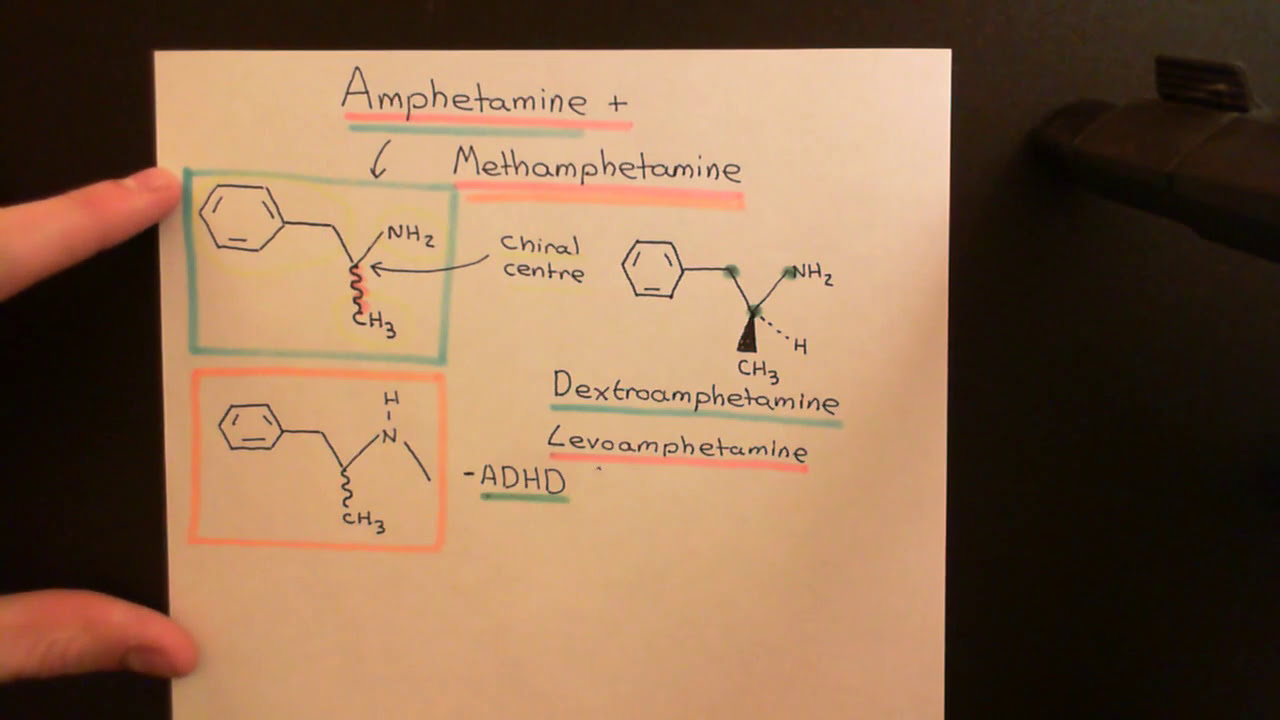 Amphetamine +
Methamphetamine
NH2
CH3
Chiral
centre
NH2
H
CH3
Dextroamphetamine
Levoamphetamine
H
N
CH3
-ADHD